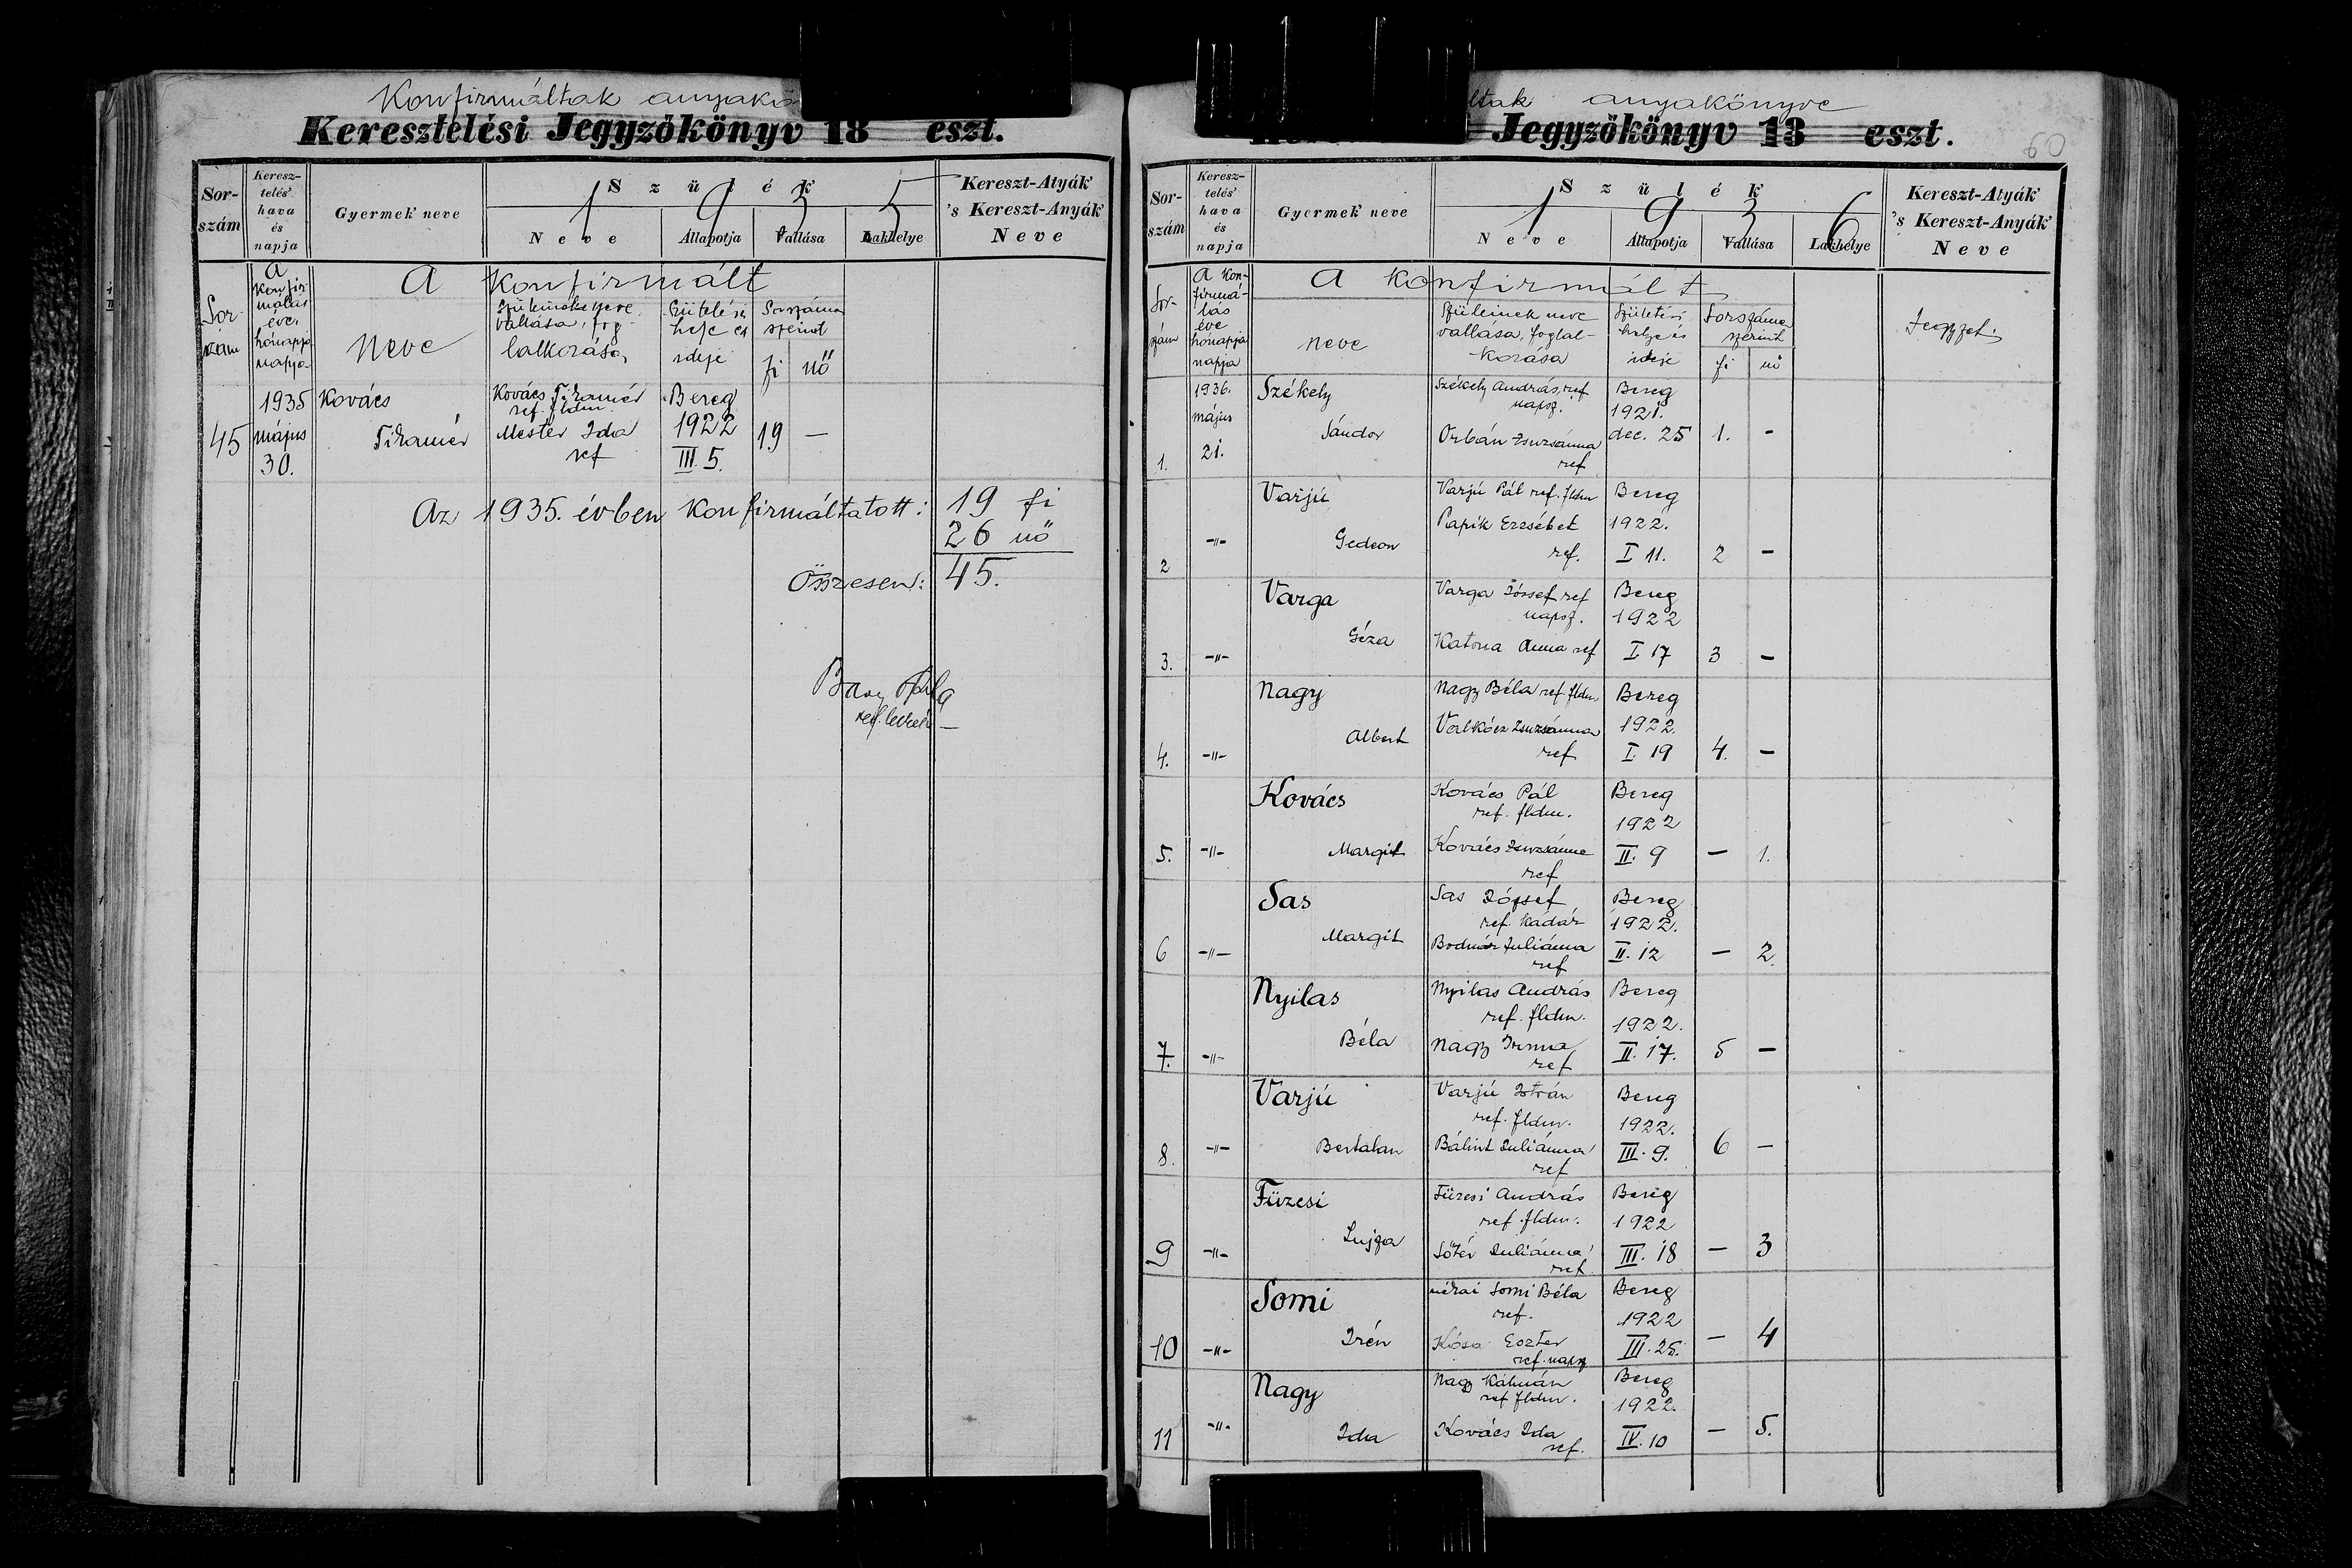 Konfirmáltak anyakö
Keresztelési Jegyzőkönyv 18 eszt.
Sor-
szám
Keresz-
telés'
hava
és
napja
Gyermek neve
Szülék
1 9 3 5
Neve
Állapotja
Vallása
Lakhelye
Kereszt-Atyák
's Kereszt-Anyák'
Neve
Sor-
szám
A
konfir
málás
éve,
hónapja
napja
A Konfirmált
Neve
Szüleinek neve,
vallása, fog-
lalkozása,
Születési
helye és
ideje
Sorszáma
szerint
fi nő
45
1935
május
30.
Kovács
Tiramér
Kovács Tiramér
ref. fldm.
Mester Ida
ref
Bereg
1922
III. 5.
19 —
Az 1935. évben konfirmáltatott: 19 fi
26 nő
Összesen: 45.
Béla
ref.
ltak anyakönyve
Jegyzőkönyv 18 eszt.
60
Sor-
szám
Keresz-
telés'
hava
és
napja
Gyermek neve
Szülék
1 9 3 6
Neve
Állapotja
Vallása
Lakhelye
Kereszt-Atyák
's Kereszt-Anyák'
Neve
Sor-
szám
A kon-
firmá-
lás
éve
hónapja
napja
A Konfirmált
neve
Szüleinek neve
vallása, foglal-
kozása
Születési
helye és
ideje
Sorszáma
szerint
fi nő
Jegyzet.
1.
1936.
május
21.
Székely
Sándor
Székely András, ref
napsz.
Orbán Zsuzsánna
ref
Bereg
1921.
dec. 25
1. -
2
-"-
Varjú
Gedeon
Varjú Pál ref. fldm
Papik Erzsébet
ref.
Bereg
1922.
I 11.
2 -
3.
-"-
Varga
Géza
Varga József ref
napsz.
Katona Anna ref
Bereg
1922
I. 17
3 -
4.
-"-
Nagy
Albert
Nagy Béla ref. fldm
Valkócz Zsuzsánna
ref
Bereg
1922.
I. 19
4. -
5.
-"-
Kovács
Margit
Kovács Pál
ref. fldm.
Kovács Zsuzsánna
ref
Bereg
1922
II. 9
- 1.
6
-"-
Sas
Margit
Sas József
ref kádár
Bodnár Juliánna
ref
Bereg
1922.
II. 12
- 2.
7.
-"-
Nyilas
Béla
Nyilas András
ref. fldm.
Nagy Irma
ref
Bereg
1922.
II. 17.
5 -
8.
-"-
Varjú
Bertalan
Varjú István
ref. fldm.
Bálint Juliánna
ref
Bereg
1922.
III. 9.
6 -
9
-"-
Füzesi
Lujza
Füzesi András
ref. fldm.
Sőtér Juliánna
ref.
Bereg
1922
III. 18
- 3
10
-"-
Somi
Irén
nérai Somi Béla
ref.
Kósa Eszter
ref. napsz
Bereg
1922
III. 25.
- 4
11
-"-
Nagy
Ida
Nagy Kálmán
ref fldm.
Kovács Ida
ref.
Bereg
1922.
IV. 10
- 5.